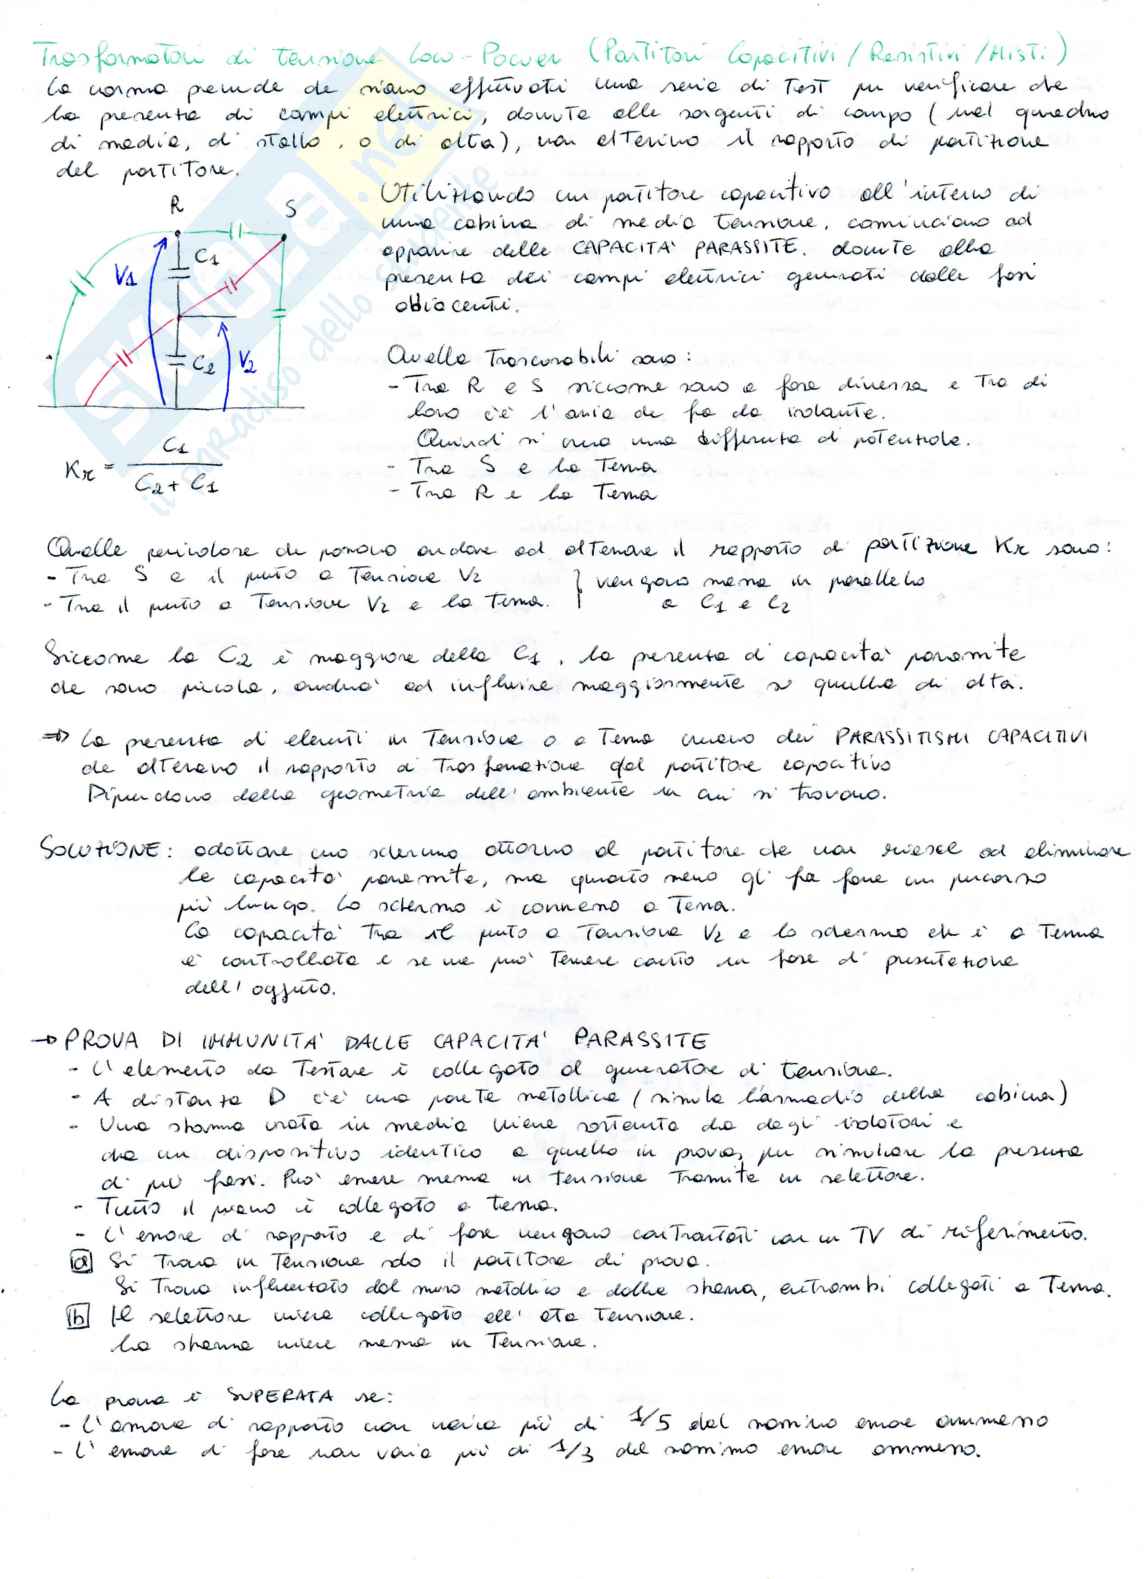 Trasformatori di tensione Low-Power (Partitori Capacitivi / Resistivi / Misti)
La norma prevede che siano effettuati una serie di test per verificare che
la presenza di campi elettrici, dovuta alle sorgenti di campo (nel quadro
di media, di stallo, o di alta), non alterino il rapporto di partizione
del partitore.
Utilizzando un partitore capacitivo all'interno di
una cabina di media tensione, cominciano ad
apparire delle CAPACITA' PARASSITE, dovute alla
presenza dei campi elettrici generati dalle fasi
adiacenti.
R S
C1
V1
C2 V2
Kr = C1 / (C2 + C1)
Quelle trascurabili sono:
- Tra R e S siccome sono a fase diversa e tra di
loro c'è l'aria che fa da isolante.
Quindi si crea una differenza di potenziale.
- Tra S e la Terra
- Tra R e la Terra
Quelle pericolose che possono andare ad alterare il rapporto di partizione Kr sono:
- Tra S e il punto a tensione V2
- Tra il punto a tensione V2 e la terra.
} vengono messe in parallelo
a C1 e C2
Siccome la C2 è maggiore della C1, la presenza di capacità parassite
che sono piccole, andrà ad influire maggiormente su quella di alta.
=> La presenza di elementi in tensione o a terra creano dei PARASSITISMI CAPACITIVI
che alterano il rapporto di trasformazione del partitore capacitivo
Dipendono dalla geometria dell'ambiente in cui si trovano.
SOLUZIONE: adottare uno schermo attorno al partitore che non riesce ad eliminare
le capacità parassite, ma quanto meno gli fa fare un percorso
più lungo. Lo schermo è connesso a terra.
La capacità tra il punto a tensione V2 e lo schermo che è a terra
è controllata e se ne può tenere conto in fase di
dell'oggetto.
→ PROVA DI IMMUNITA' DALLE CAPACITA' PARASSITE
- L'elemento da testare è collegato al generatore di tensione.
- A distanza D c'è una parete metallica (simula l'armadio della cabina)
- Una sbarra usata in media viene sostenuta da degli isolatori e
da un dispositivo identico a quello in prova, per simulare la presenza
di più fasi. Può essere messa in tensione tramite un selettore.
- Tutto il piano è collegato a terra.
- L'errore di rapporto e di fase vengono confrontati con un TV di riferimento.
a Si trova in tensione solo il partitore di prova.
Si trova influenzato dal muro metallico e dalla sbarra, entrambi collegati a terra.
b Il selettore viene collegato all'alta tensione.
La sbarra viene messa in tensione.
La prova è SUPERATA se:
- L'errore di rapporto non varia più di 1/5 del massimo errore ammesso
- L'errore di fase non varia più di 1/3 del massimo errore ammesso.
skuola.net
il paradiso dello studente